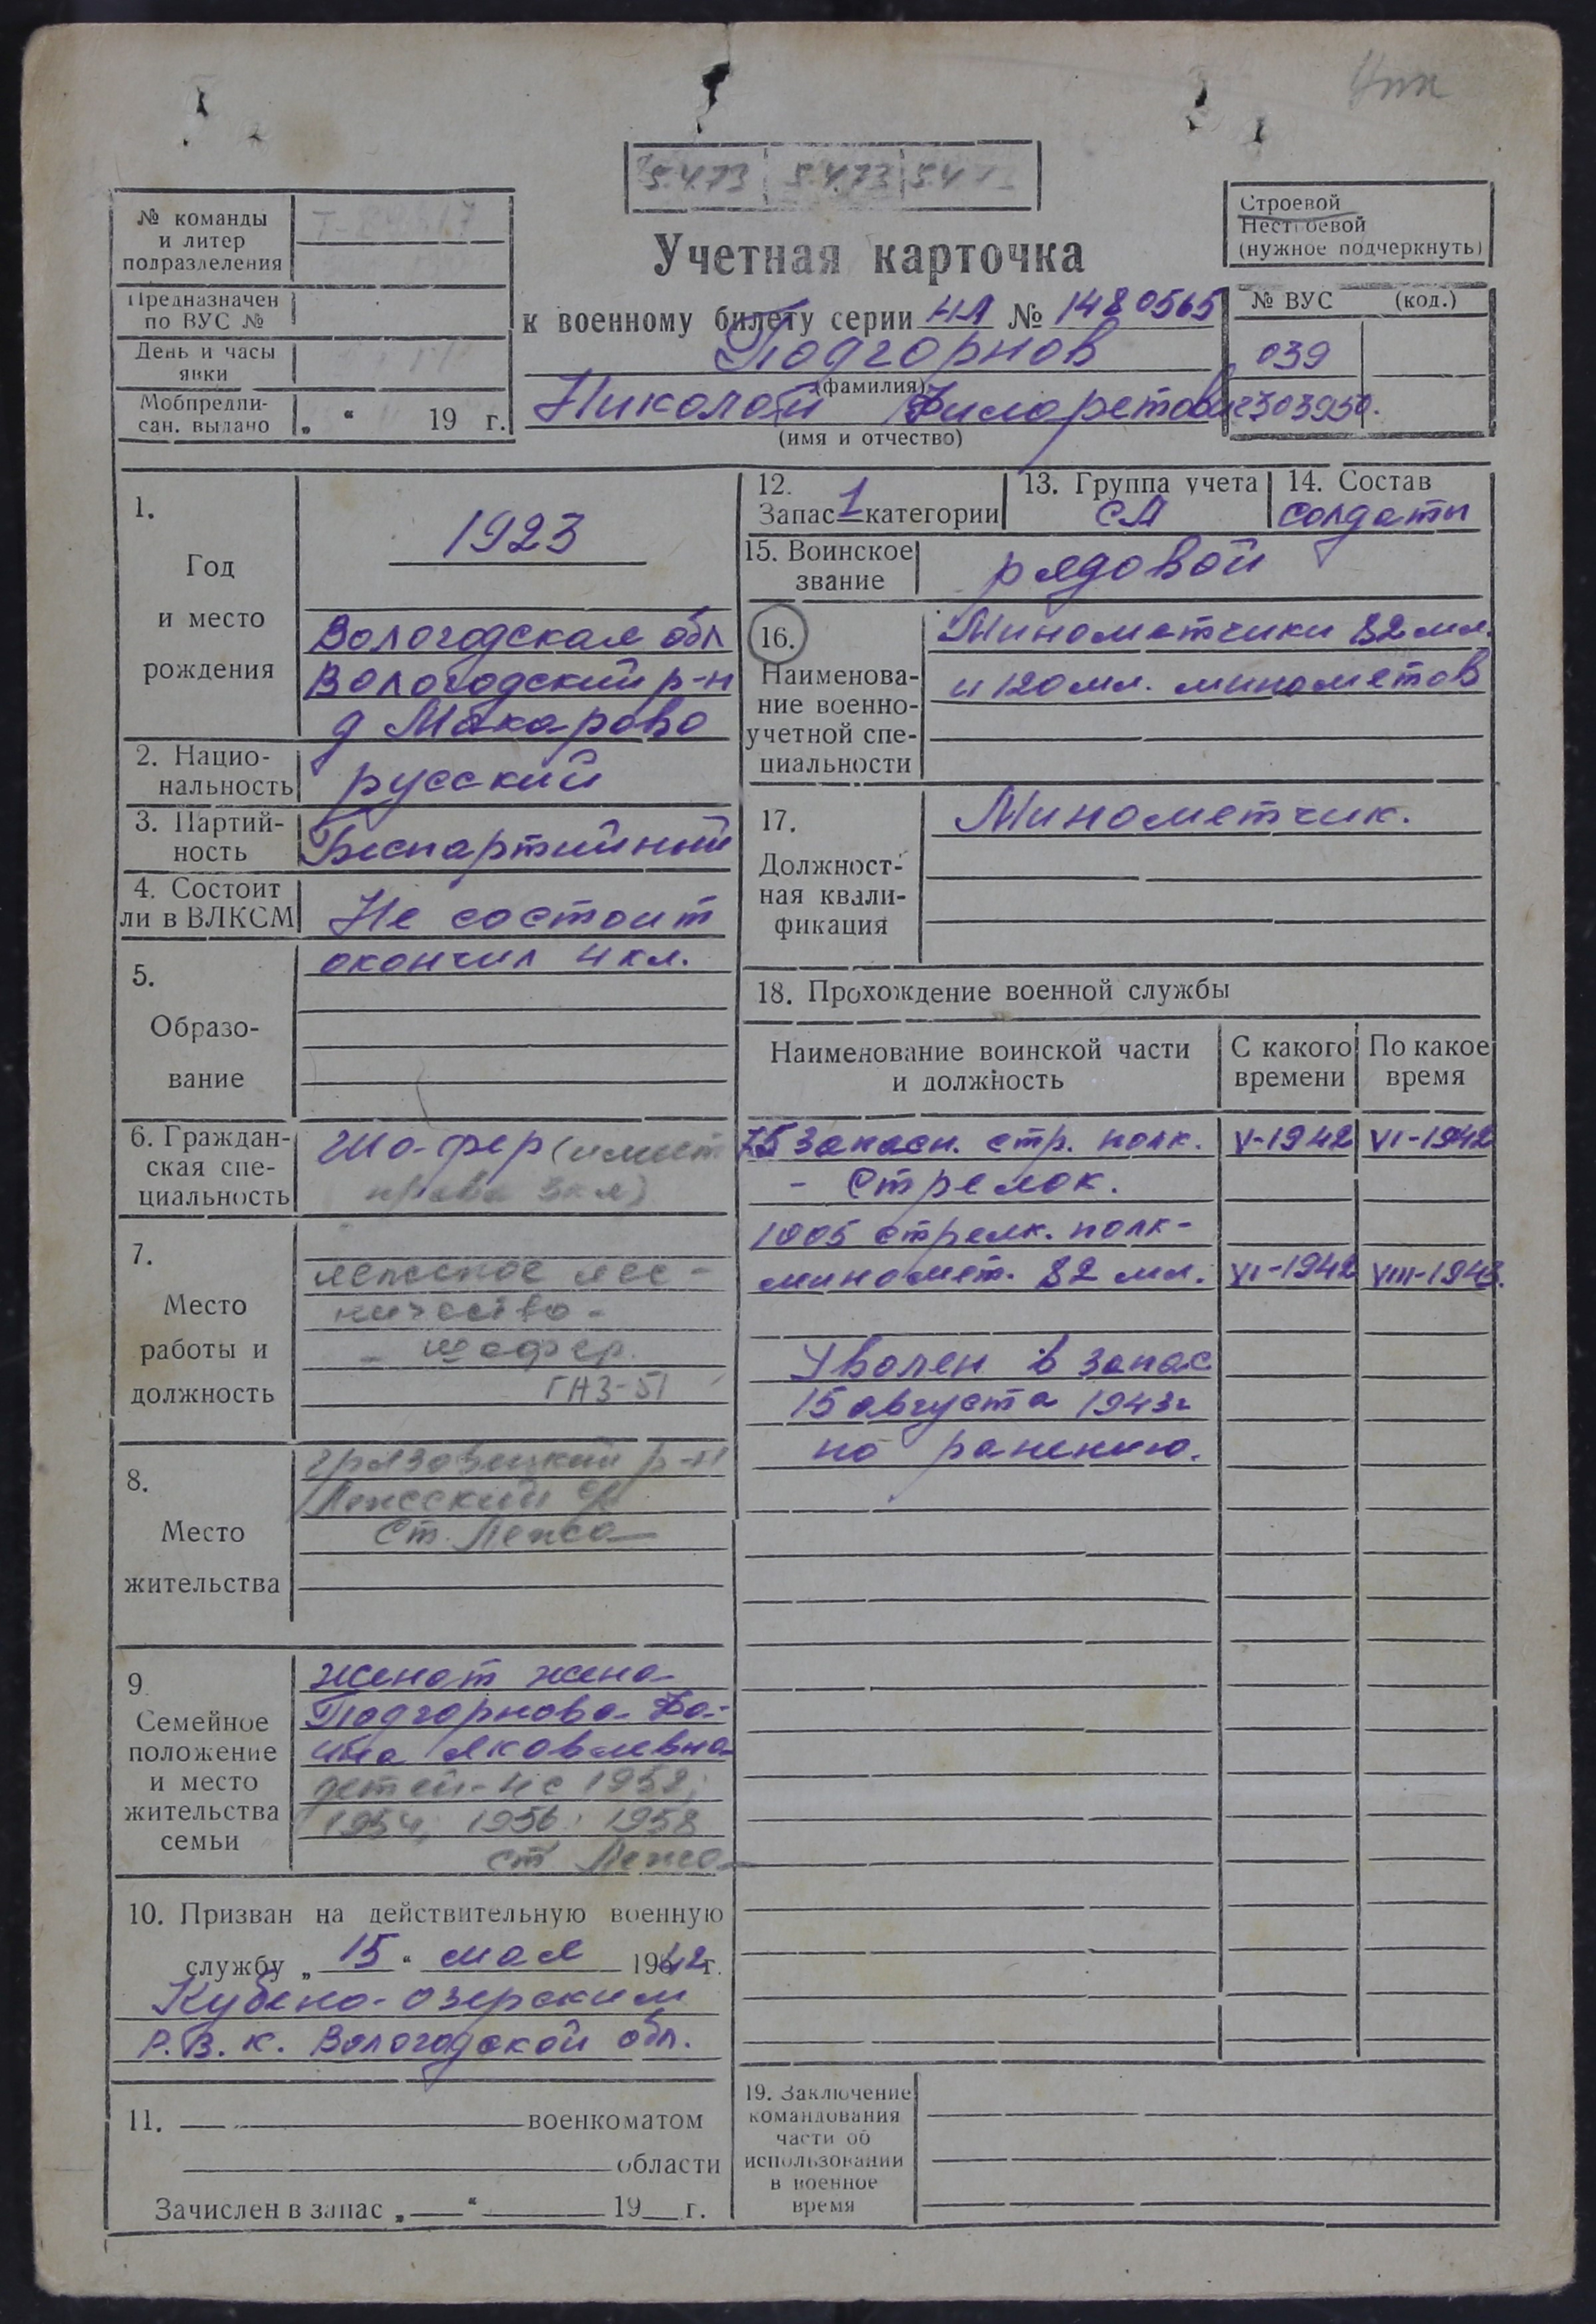 5.4.73 5.4.73 5.4.73
№ команды
и литер
подразделения
Предназначен
по ВУС №
День и часы
явки
Мобпредпи-
сан. выдано „ “ 19 г.
Учетная карточка
к военному билету серии НЛ № 1480565
Подгорнов
(фамилия)
Николай Филаретович
(имя и отчество)
Строевой
Нестроевой
(нужное подчеркнуть)
№ ВУС (код.)
039
2303950.
1.
Год
и место
рождения
1923
Вологодская обл
Вологодский р-н
д Макарово
2. Нацио-
нальность
русский
3. Партий-
ность
Беспартийный
4. Состоит
ли в ВЛКСМ
Не состоит
5.
Образо-
вание
окончил 4 кл.
6. Граждан-
ская спе-
циальность
Шофер (имеет
права 3 кл)
7.
Место
работы и
должность
лежское лес-
ничество-
- шофер.
ГАЗ-51
8.
Место
жительства
Грязовецкий р-н
Лежский с/с
Ст. Лежа
9
Семейное
положение
и место
жительства
семьи
женат жена-
Подгорнова Фа-
ина Яковлевна
детей-4 с 1952;
1954; 1956; 1958
ст Лежа
10. Призван на действительную военную
службу „ 15 “ мая 1942 г.
Кубено-озерским
Р.В.К. Вологодской обл.
11. военкоматом
области
Зачислен в запас „ “ 19 г.
12.
Запас 1 категории
13. Группа учета
СА
14. Состав
солдаты
15. Воинское
звание
рядовой
16.
Наименова-
ние военно-
учетной спе-
циальности
Минометчики 82 мм.
и 120 мм. минометов
17.
Должност-
ная квали-
фикация
Минометчик.
18. Прохождение военной службы
Наименование воинской части
и должность
С какого
времени
По какое
время
75 запасн. стр. полк. V-1942 VI-1942
- Стрелок.
1005 стрелк. полк-
миномет. 82 мм. VI-1942 VIII-1943.
Уволен в запас
15 августа 1943 г
по ранению.
19. Заключение
командования
части об
использовании
в военное
время